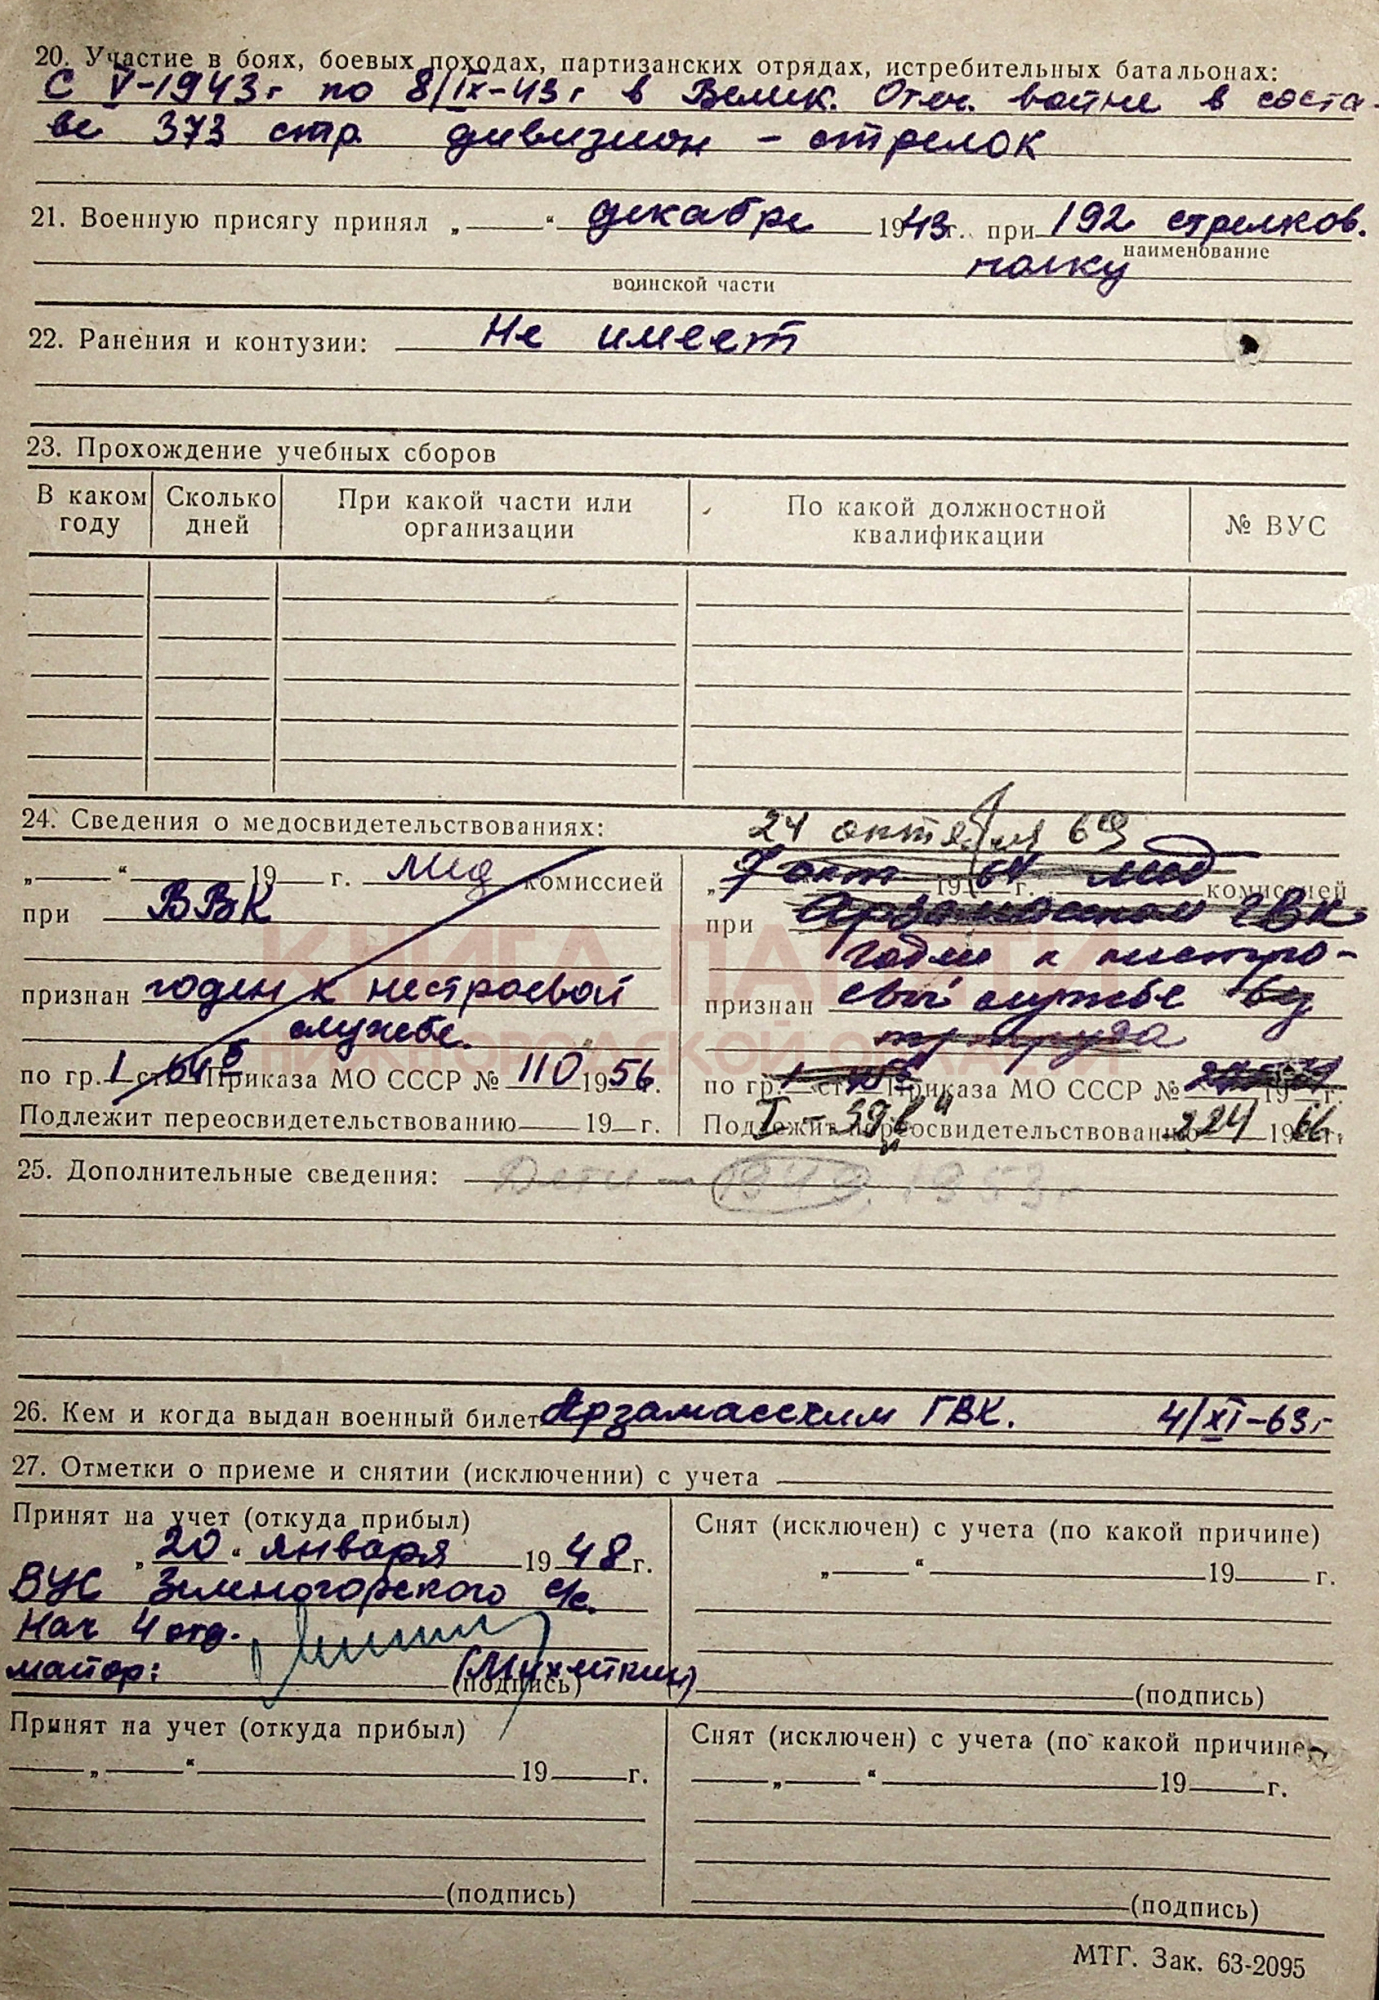 20. Участие в боях, боевых походах, партизанских отрядах, истребительных батальонах:
С V-1943г по 8/IX-43г в Велик. Отеч. войне в соста-
ве 373 стр. дивизион - стрелок
21. Военную присягу принял „ “ декабре 1943г. при 192 стрелков.
наименование
полку
воинской части
22. Ранения и контузии: Не имеет
23. Прохождение учебных сборов
В каком году Сколько дней При какой части или организации По какой должностной квалификации № ВУС
24. Сведения о медосвидетельствованиях:
24 октября 69
„ “ 19 г. мед комиссией
при ВВК
признан годен к нестроевой
службе.
по гр. I ст. 64б Приказа МО СССР № 110 1956г.
Подлежит переосвидетельствованию 19 г.
„7 окт 1964 г. мед комиссией
при Арзамасском ГВК
годен к нестро-
признан евой службе
по гр. I ст. Приказа МО СССР № 19 г.
I - 39
Подлежит переосвидетельствованию 224 1966г.
25. Дополнительные сведения: Дети - 1949, 1953г
26. Кем и когда выдан военный билет Арзамасским ГВК. 4/XI-63г
27. Отметки о приеме и снятии (исключении) с учета
Принят на учет (откуда прибыл)
„20“ января 1948г.
ВУС Зеленогорского с/с.
Нач 4 отд.
майор:
(подпись)
Снят (исключен) с учета (по какой причине)
„ “ 19 г.
(подпись)
Принят на учет (откуда прибыл)
„ “ 19 г.
(подпись)
Снят (исключен) с учета (по какой причине)
„ “ 19 г.
(подпись)
МТГ. Зак. 63-2095
КНИГА ПАМЯТИ
НИЖЕГОРОДСКОЙ ОБЛАСТИ